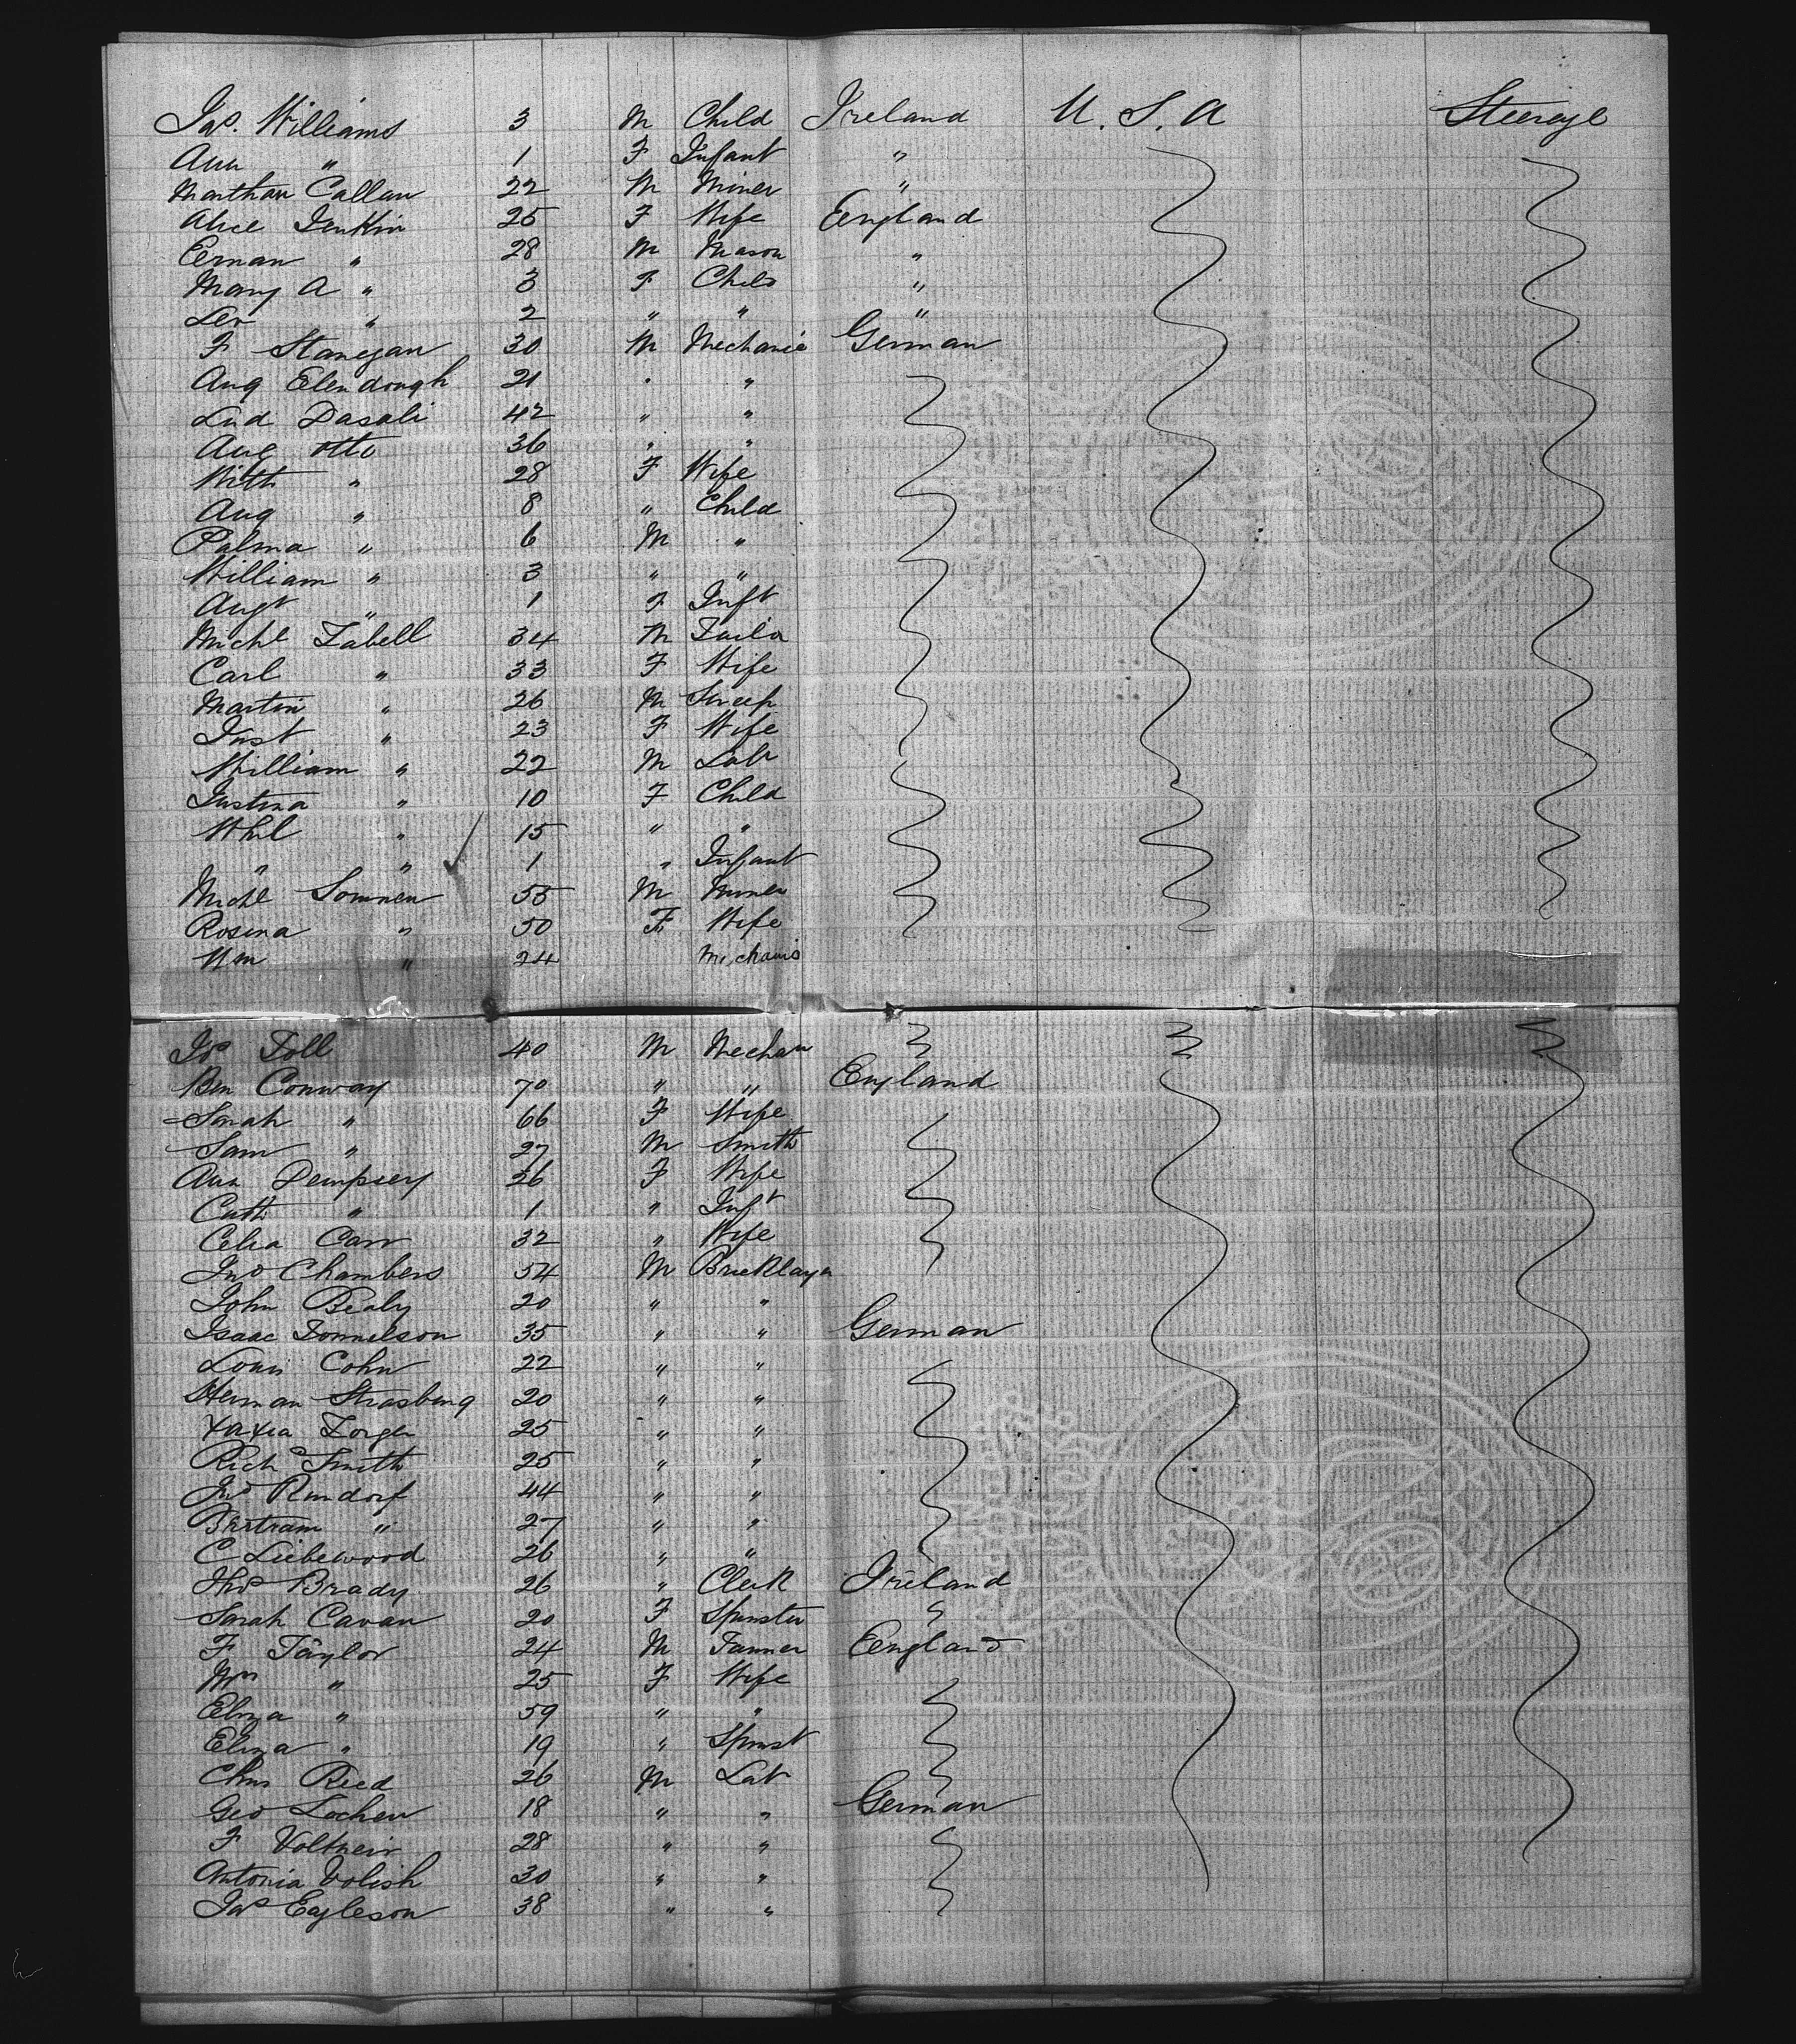 Jas. Williams 3 M Child Ireland U.S.A Steerage
Ann " 1 F Infant "
Marthan Callan 22 M Miner "
Alice Jenkin 25 F Wife England
Ernan " 28 M Mason "
Mary A " 3 F Child "
" 2 " " "
F Stanegan 30 M Mechanic German
Aug Elendough 21 " "
Lud Dasali 42 " "
Aug Otto 36 " "
Wilh " 28 F Wife
Aug " 8 " Child
Palma " 6 M "
William " 3 " "
Augt " 1 F Inft
Michl Zabell 34 M Tailor
Carl " 33 F Wife
Martin " 26 M Sweep
Just " 23 F Wife
William " 22 M Labr
Justina " 10 F Child
Whil " 15 " "
" " 1 " Infant
Michl Sommen 55 M Miner
Rosina " 50 F Wife
Wm " 24 Michanis
Jos Toll 40 M Mechan
Ben Conway 70 " " England
Sarah " 66 F Wife
Sam " 27 M Smith
Ann Dempsey 26 F Wife
Cath " 1 " Inft
Celia Carr 32 " Wife
Jno Chambers 54 M Bricklayer
John Bealy 20 " "
Isaac Tonnelson 35 " " German
Louis Cohn 22 " "
Herman Strasburg 20 " "
Zorger 25 " "
Rich Smith 25 " "
Jno Rundorf 44 " "
Bertram " 27 " "
C Liebewood 26 " "
Thos Brady 26 " Clerk Ireland
Sarah Cavan 20 F Spinster "
F Taylor 24 M Farmer England
Mrs " 25 F Wife
Eliza " 59 " "
Eliza " 19 " Spinst
Chas Reed 26 M Labr
Geo Lochen 18 " " German
F Voltneir 28 " "
Antonia Volish 30 " "
Jas Eagleson 38 " "